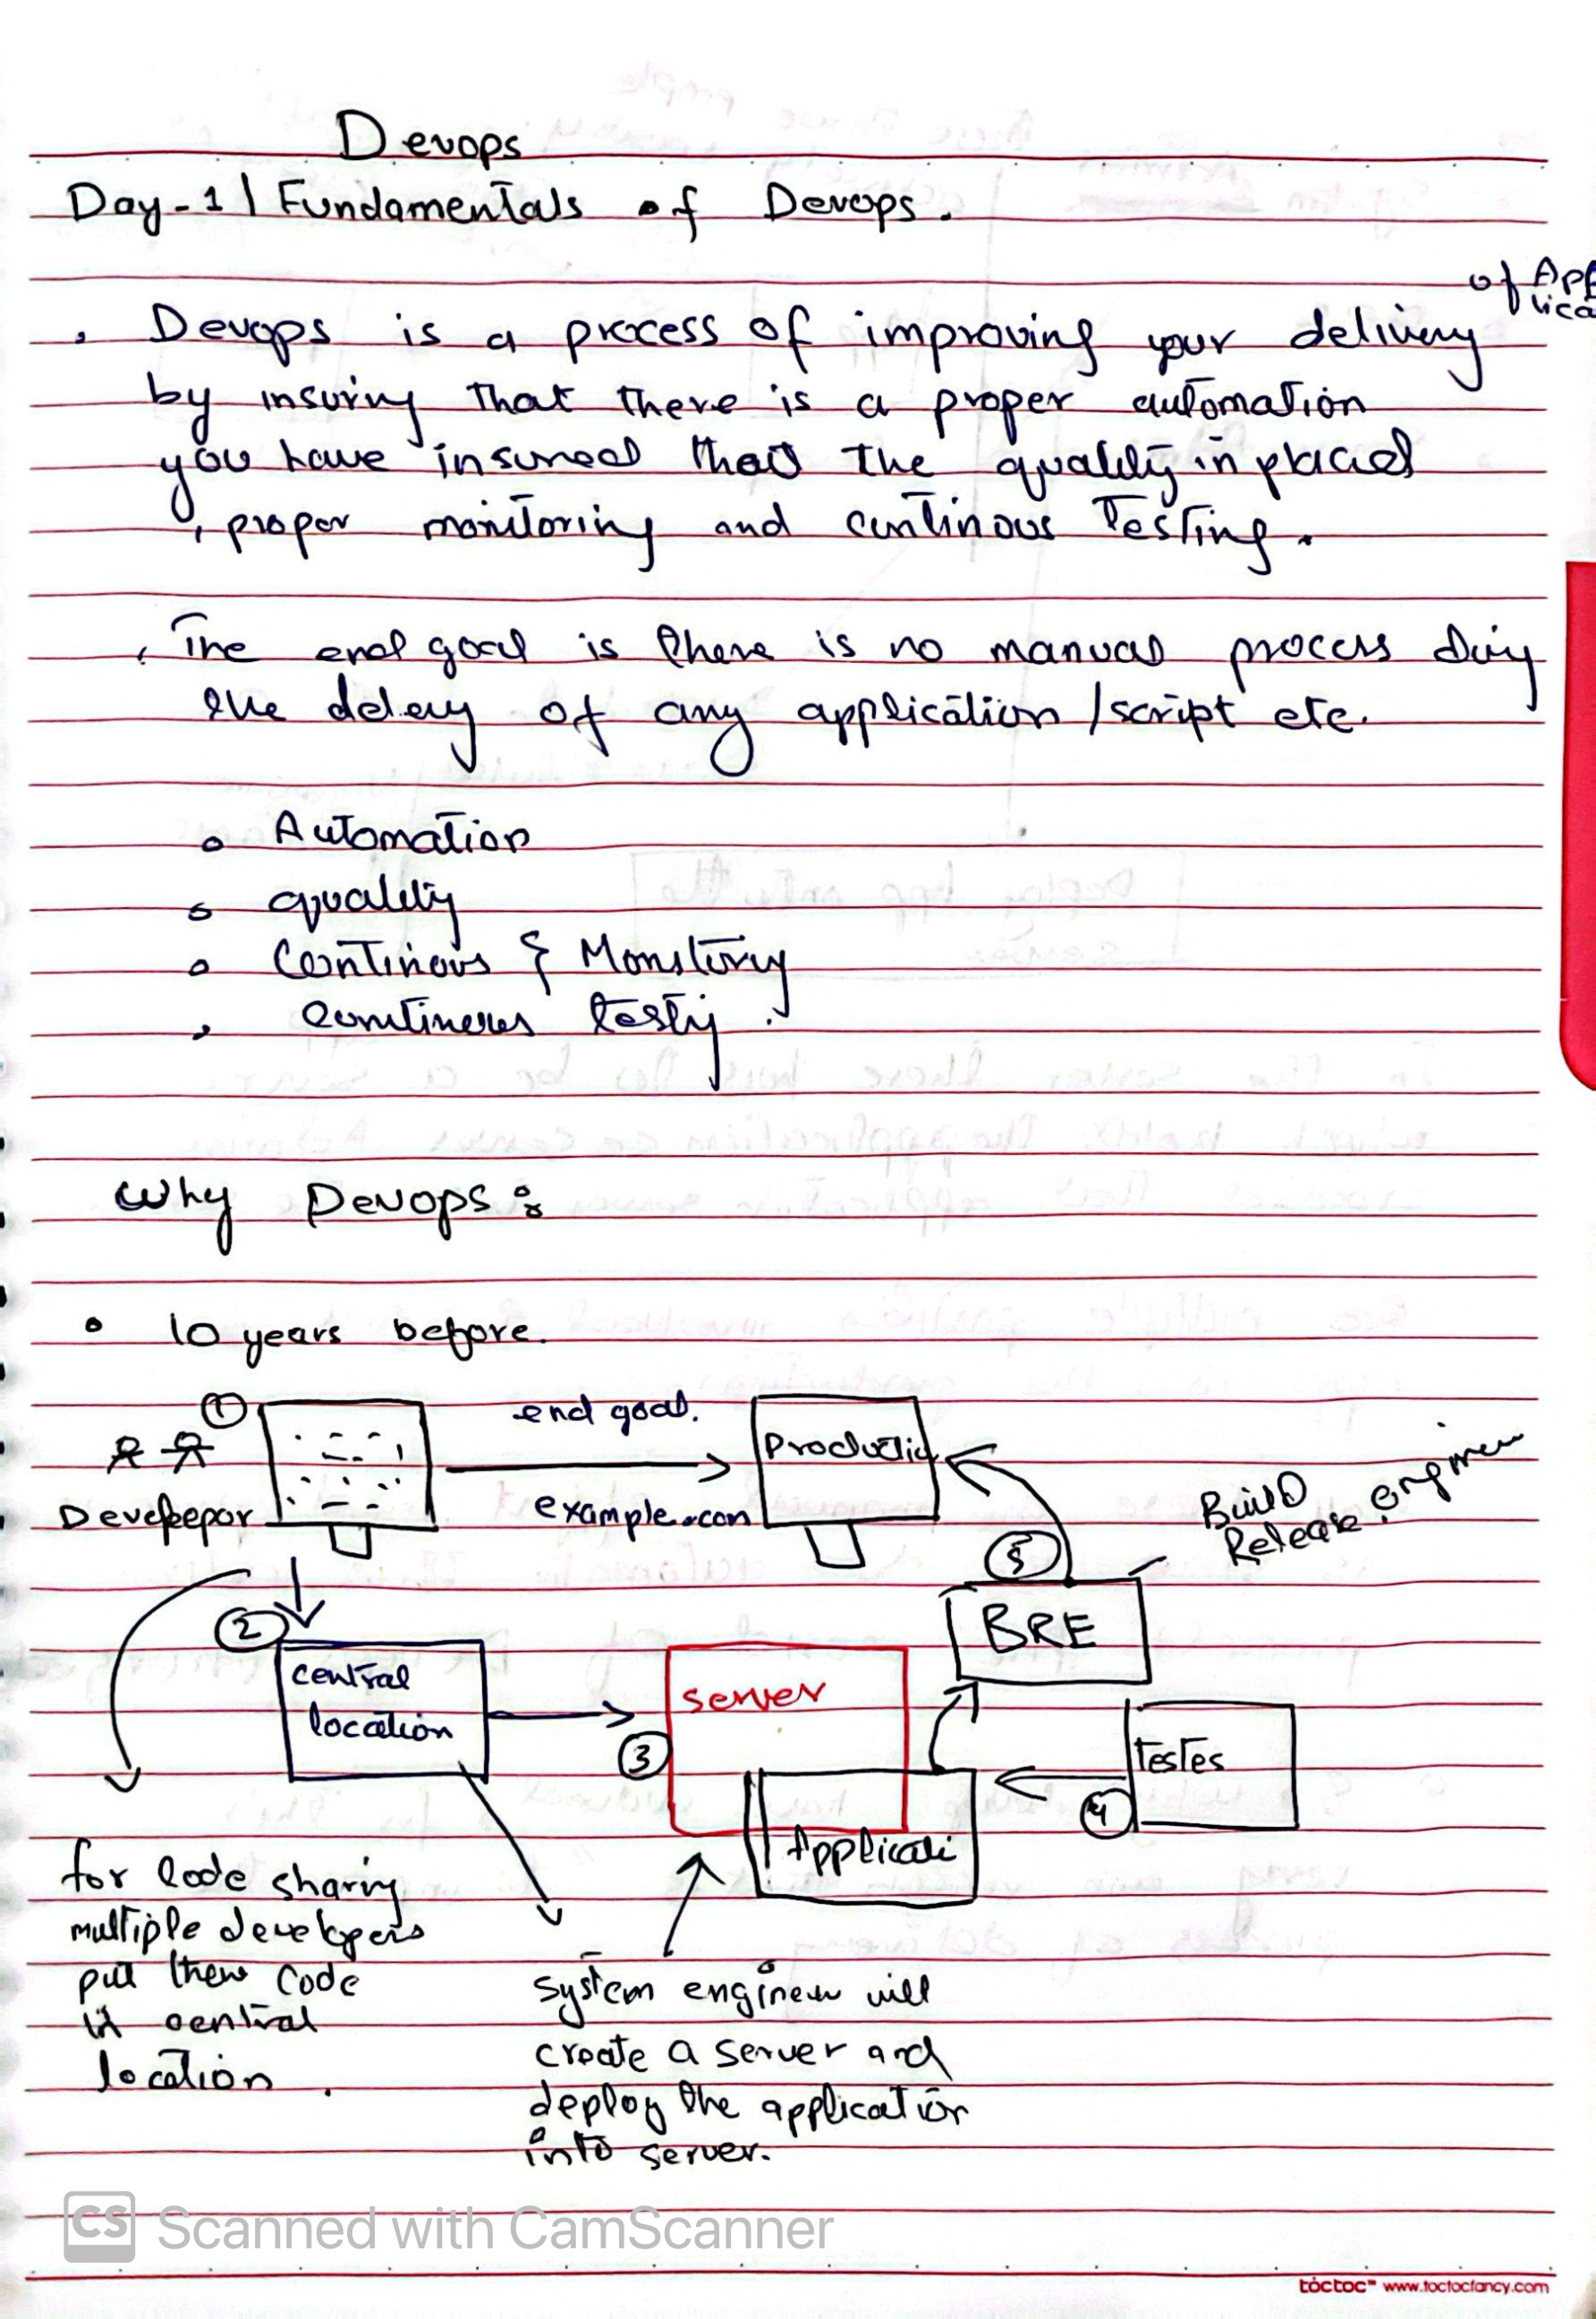 Devops
Day-1 | Fundamentals of Devops.
of App
lica
Devops is a process of improving your delivery
by insuring that there is a proper automation
you have insured that the quality in placed
, proper monitoring and continous Testing.
The end goal is there is no manual process
the of any application / script etc.
Automation
quality
Continous &
testing.
Why Devops :
10 years before.
1
end goal.
Developer
example.com
Productio
Build
Release. engineer
5
2
BRE
central
location
server
3
testes
4
Applicati
for code sharing
multiple developers
put there code
in central
location.
system engineer will
create a server and
deploy the application
into server.
CS Scanned with CamScanner
toctoc™ www.toctocfancy.com